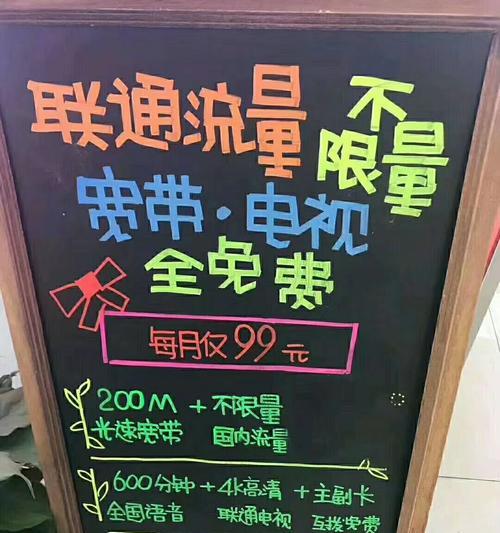 联通流量 不限量
宽带·电视
全免费
每月仅99元
200M + 不限量
光速宽带 国内流量
600分钟 + 4k高清 + 主副卡
全国语音 联通电视 互拨免费